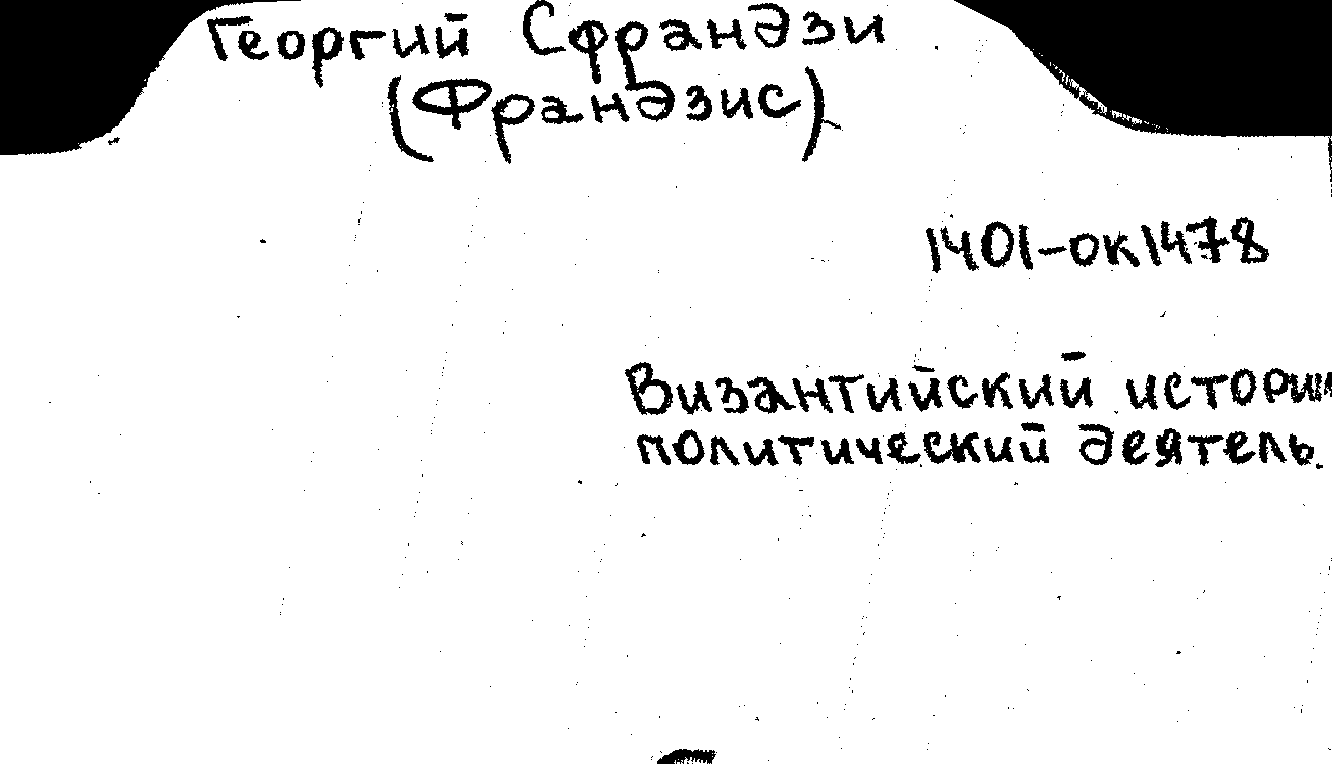 Георгий Сфрандзи
(Франдзис)
1401-ок1478
Византийский
политический деятель.